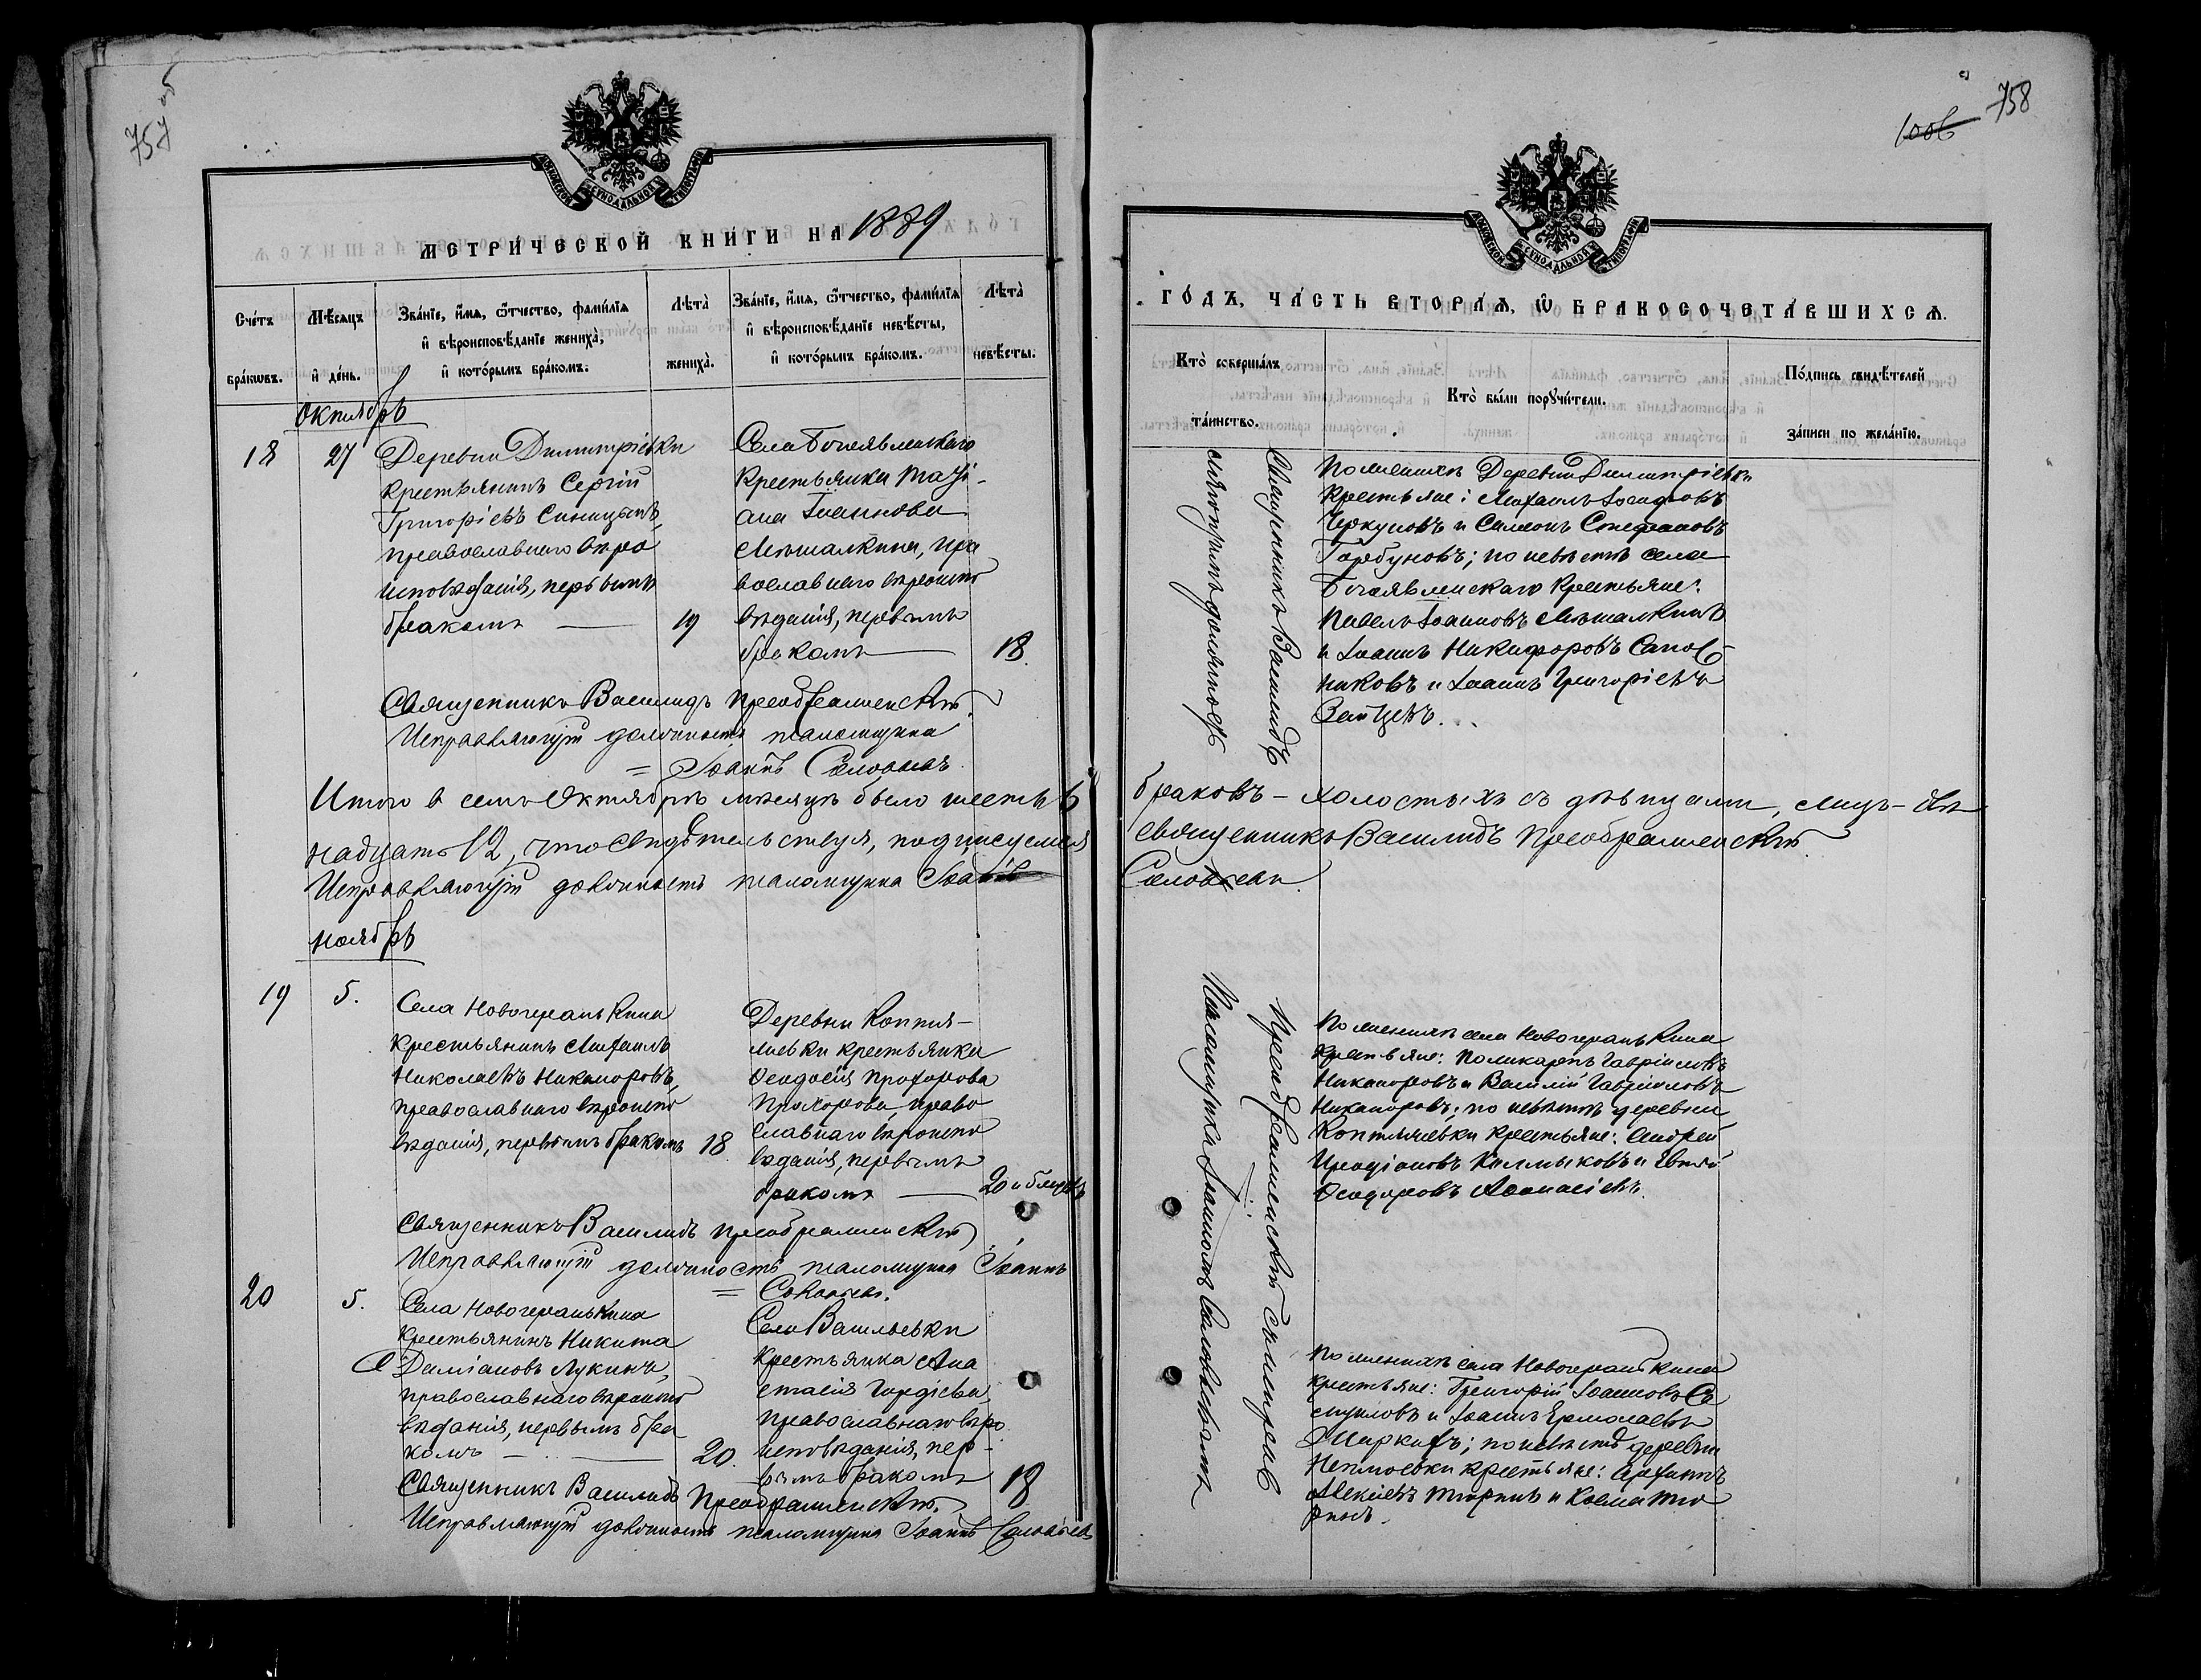 757 об
МЕТРИЧЕСКОЙ КНИГИ НА 1889
Счетъ браковъ.
Мѣсяцъ и день.
Званіе, имя, отчество, фамилія и вѣроисповѣданіе жениха, и которымъ бракомъ.
Лѣта жениха.
Званіе, имя, отчество, фамилія и вѣроисповѣданіе невѣсты, и которымъ бракомъ.
Лѣта невѣсты.
Октябрь
18
27
Деревни Димитріевки
крестьянинъ Сергій
Григоріевъ Синицынъ,
православнаго вѣро
исповѣданія, первымъ
бракомъ
19
Села Богоявленскаго
крестьянка Таті-
ана Іоаннова
Мѣшалкина, пра
вославнаго вѣроиспо
вѣданія, первымъ
бракомъ
18.
Священникъ Василидъ Преображенскій.
Исправляющій должность псаломщика
= Іоаннъ Соловьевъ
Итого в семъ Октябрѣ мѣсяцѣ было шесть 6
надцать 12, что свидѣтельствуя, подписуемся
Исправляющій должность псаломщика Іоаннъ
Ноябрь
19
5.
Села Новогеранькина
крестьянинъ Михаилъ
Николаевъ Никаноровъ,
православнаго вѣроиспо
вѣданія, первымъ бракомъ
18
Деревни Коптя-
жевки крестьянка
Ѳеодосія Прохорова
Прохорова, право
славнаго вѣроиспо
вѣданія, первымъ
бракомъ
20
Священникъ Василидъ Преображенскій
Исправляющій должность псаломщика Іоаннъ
= Соловьевъ.
20
5.
Села Новогеранькина
крестьянинъ Никита
Даміановъ Лукинъ,
православнаго вѣроиспо
вѣданія, первымъ бра
комъ
20.
Села Васильевки
крестьянка Ана
стасія Гордіева,
православнаго вѣро
исповѣданія, пер-
вымъ бракомъ
18
Священникъ Василидъ Преображенскій.
Исправляющій должность псаломщика Іоаннъ Соловьевъ
758
1006
ГОДЪ, ЧАСТЬ ВТОРАЯ, Ѡ БРАКОСОЧЕТАВШИХСЯ.
Кто совершалъ таинство.
Кто были поручители.
Подпись свидѣтелей записи по желанію.
Священникъ Василидъ
По женихѣ Деревни Димитріевки
крестьяне: Михаилъ Іосифовъ
Черкуновъ и Симеонъ Стефановъ
Горбуновъ; по невѣстѣ села
Богоявленскаго крестьяне:
Павелъ Іоанновъ Мѣшалкинъ
и Іоаннъ Никифоровъ Сапож
никовъ и Іоаннъ Григоріевъ
Зайцевъ.
браковъ - холостыхъ съ дѣвицами, лицъ - две
священникъ Василидъ Преображенскій.
Соловьевъ
Преображенскій
Псаломщика Іоанномъ Соловьевымъ
По женихѣ села Новогеранькина
крестьяне: Поликарпъ Гавріиловъ
Никаноровъ и Василій Гавріиловъ
Никаноровъ; по невѣстѣ деревни
Коптяжевки крестьяне: Андрей
Иродіоновъ Калмыковъ и
Ѳеодоровъ Аѳанасіевъ.
По женихѣ села Новогеранькина
крестьяне: Григорій Іоанновъ Са
муиловъ и Іоаннъ Ермолаевъ
по невѣстѣ деревни
крестьяне:
Алексіевъ Тюринъ и Косма Тю
ринъ.